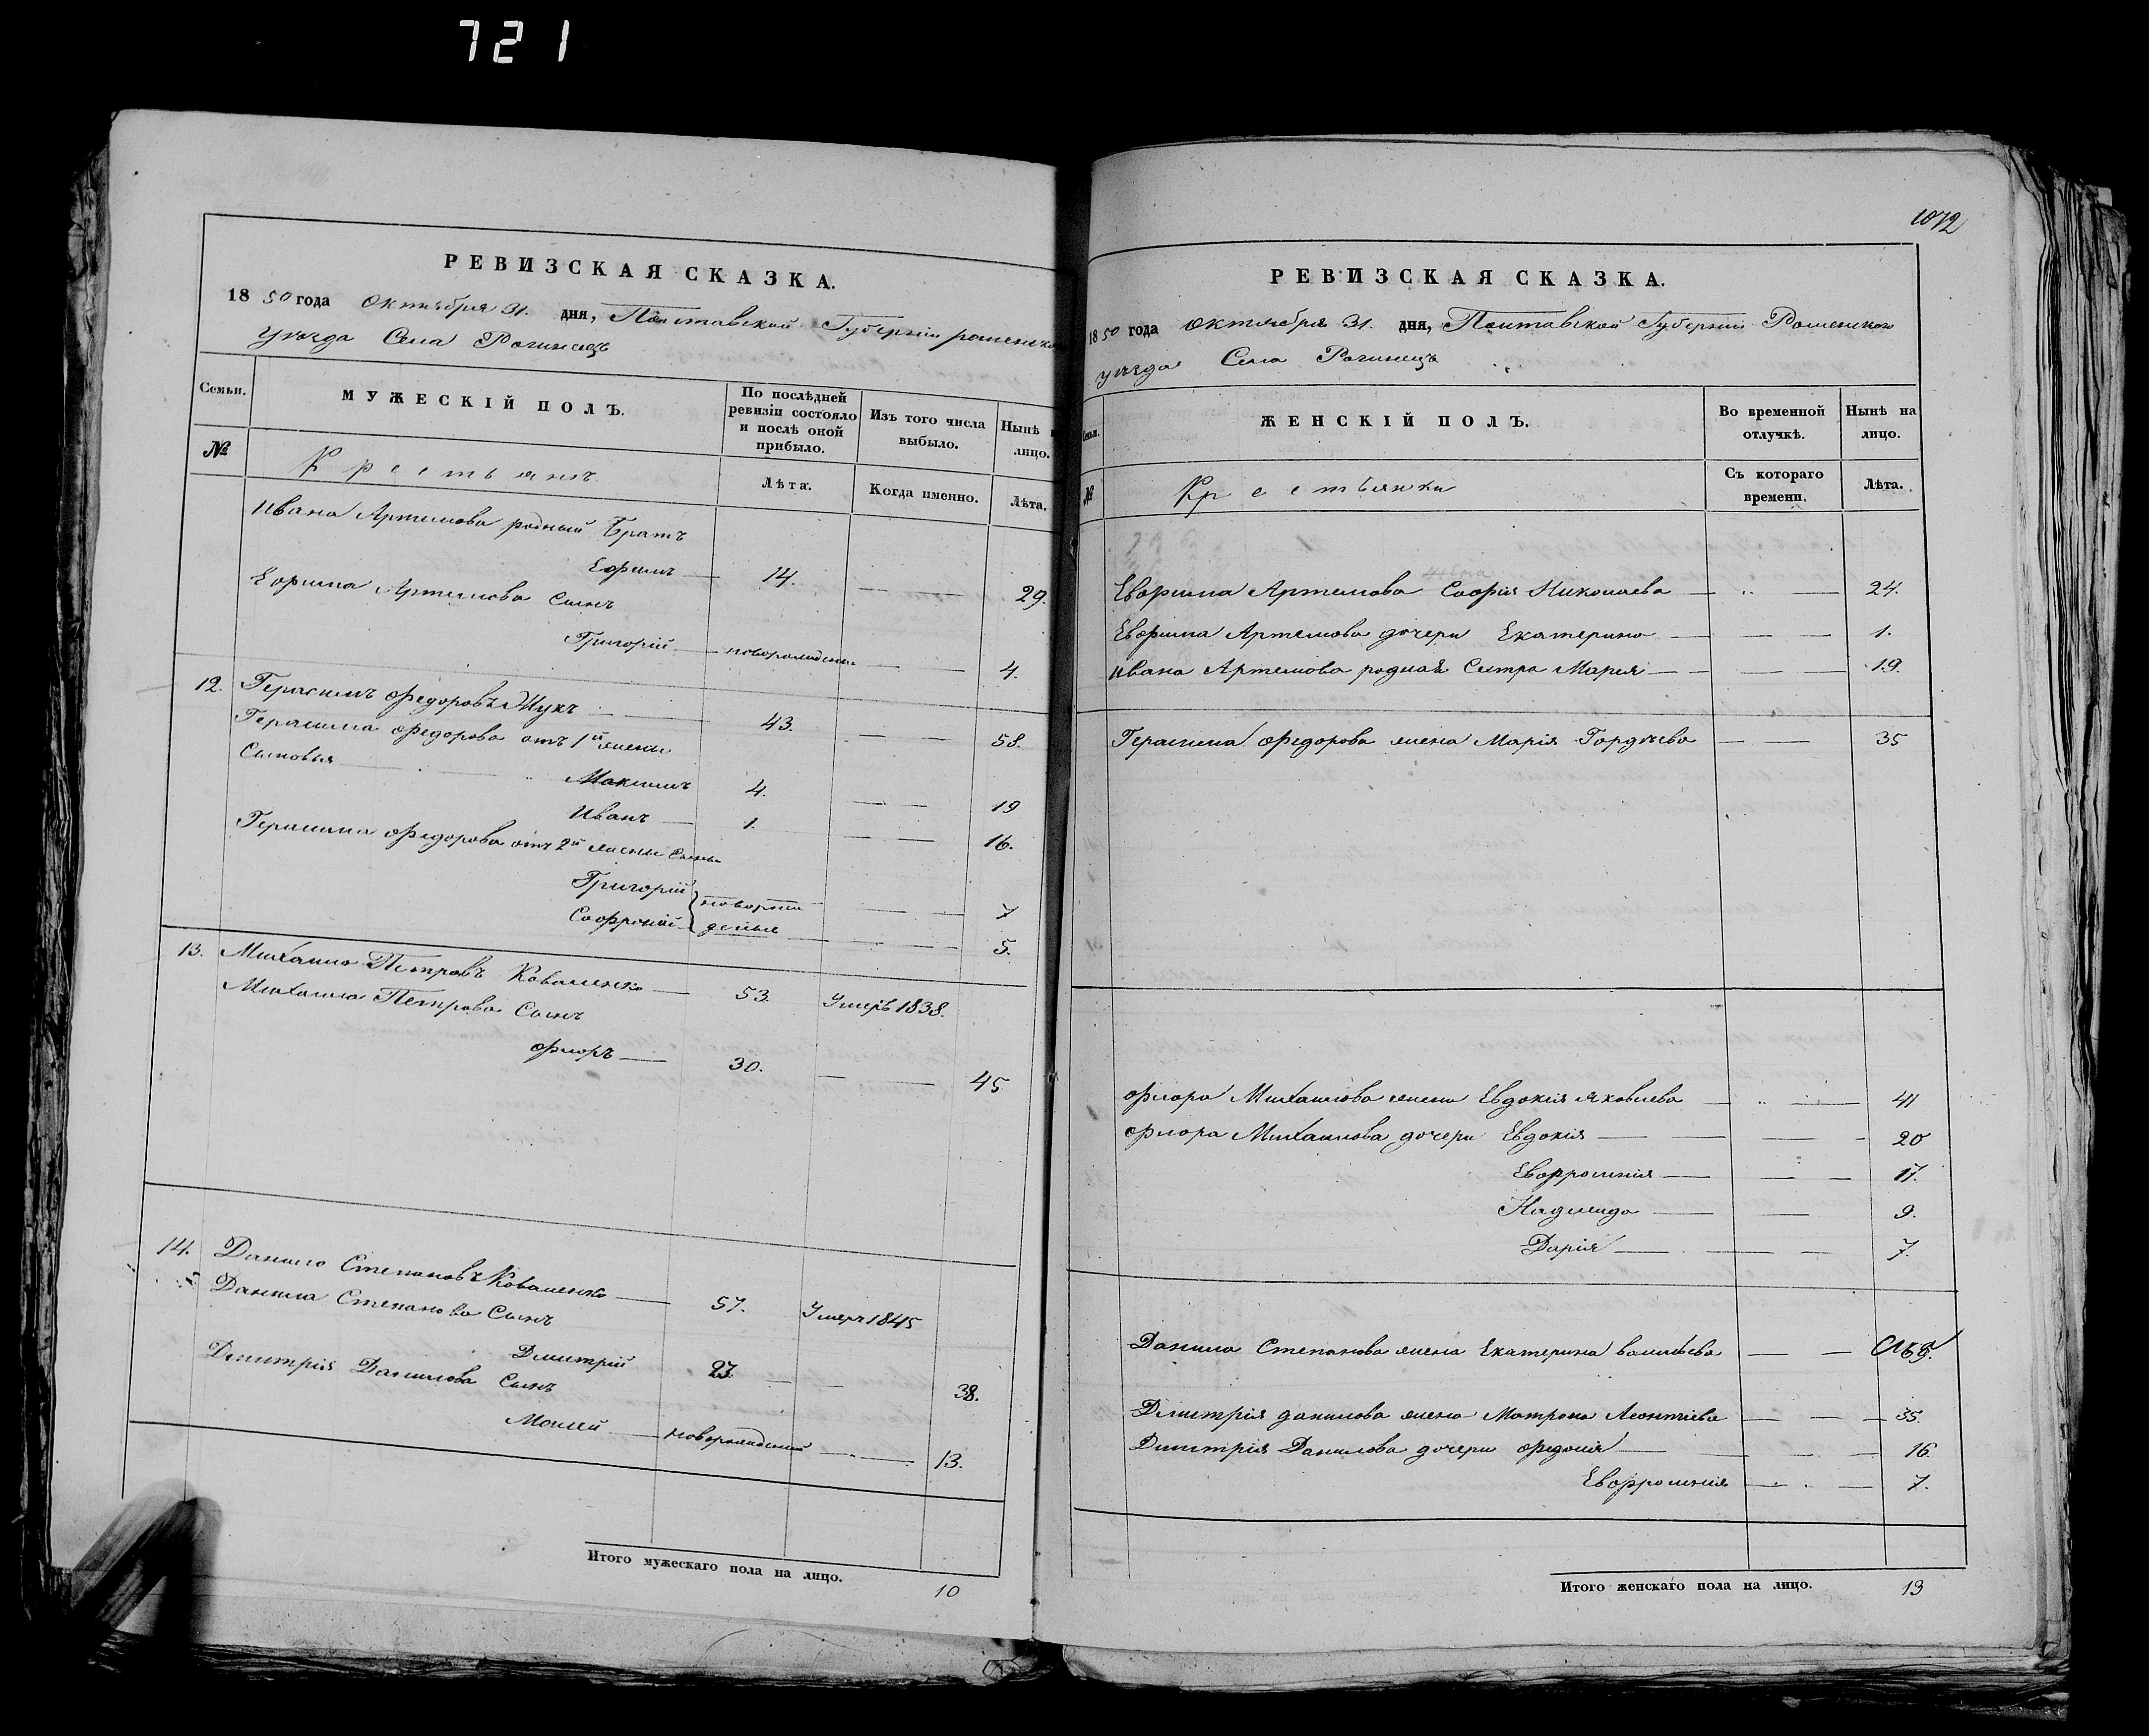 721
РЕВИЗСКАЯ СКАЗКА.
1850 года Октября 31. дня, Полтавской Губерніи роменско
уезда Села Рогинецъ
Семьи. МУЖЕСКІЙ ПОЛЪ. По послѣдней ревизіи состояло и послѣ оной прибыло. Изъ того числа выбыло. Нынѣ лицо.
№ Крестьянъ Лѣта. Когда именно. Лѣта.
Ивана Артемова родный Братъ
Ефимъ 14. 29.
Ефима Артемова Сынъ
Григорій новорожденный 4.
12. Герасимъ Федоровъ Жукъ 43. 58.
Герасима Федорова отъ 1й жены
Сыновья Максимъ 4. 19
Иванъ 1. 16.
Герасима Федорова отъ 2й жены Сыны
Григорій 7
Софроній новорожденые 5.
13. Михаило Петровъ Коваленко 53. Умеръ 1838.
Михаила Петрова Сынъ
Флоръ 30. 45
14. Данило Степановъ Коваленко 57. Умеръ 1845
Данила Степанова Сынъ
Дмитрій 23. 38.
Дмитрія Данилова Сынъ
Моисей новорожденный 13.
Итого мужескаго пола на лицо. 10
1072
РЕВИЗСКАЯ СКАЗКА.
1850 года Октября 31. дня, Полтавской Губерніи Роменского
уезда Села Рогинецъ
Семьи. ЖЕНСКІЙ ПОЛЪ. Во временной отлучкѣ. Нынѣ на лицо.
№ Крестьянки Съ котораго времени. Лѣта.
жена
Евфима Артемова Софія Николаева 24.
Евфима Артемова дочери Екатерина 1.
Ивана Артемова родная Сестра Марія 19.
Герасима Федорова жена Марія Гордѣева 35
Флора Михаилова жена Евдокія Яковлева 41
Флора Михаилова дочери Евдокія 20
Евфросинія 17.
Надежда 9.
Дарія 7.
Данила Степанова жена Екатерина васильева 69.
Дмитрія данилова жена Матрона Леонтіева 35.
Дмитрія Данилова дочери Федосія 16.
Евфросинія 7.
Итого женскаго пола на лицо. 13